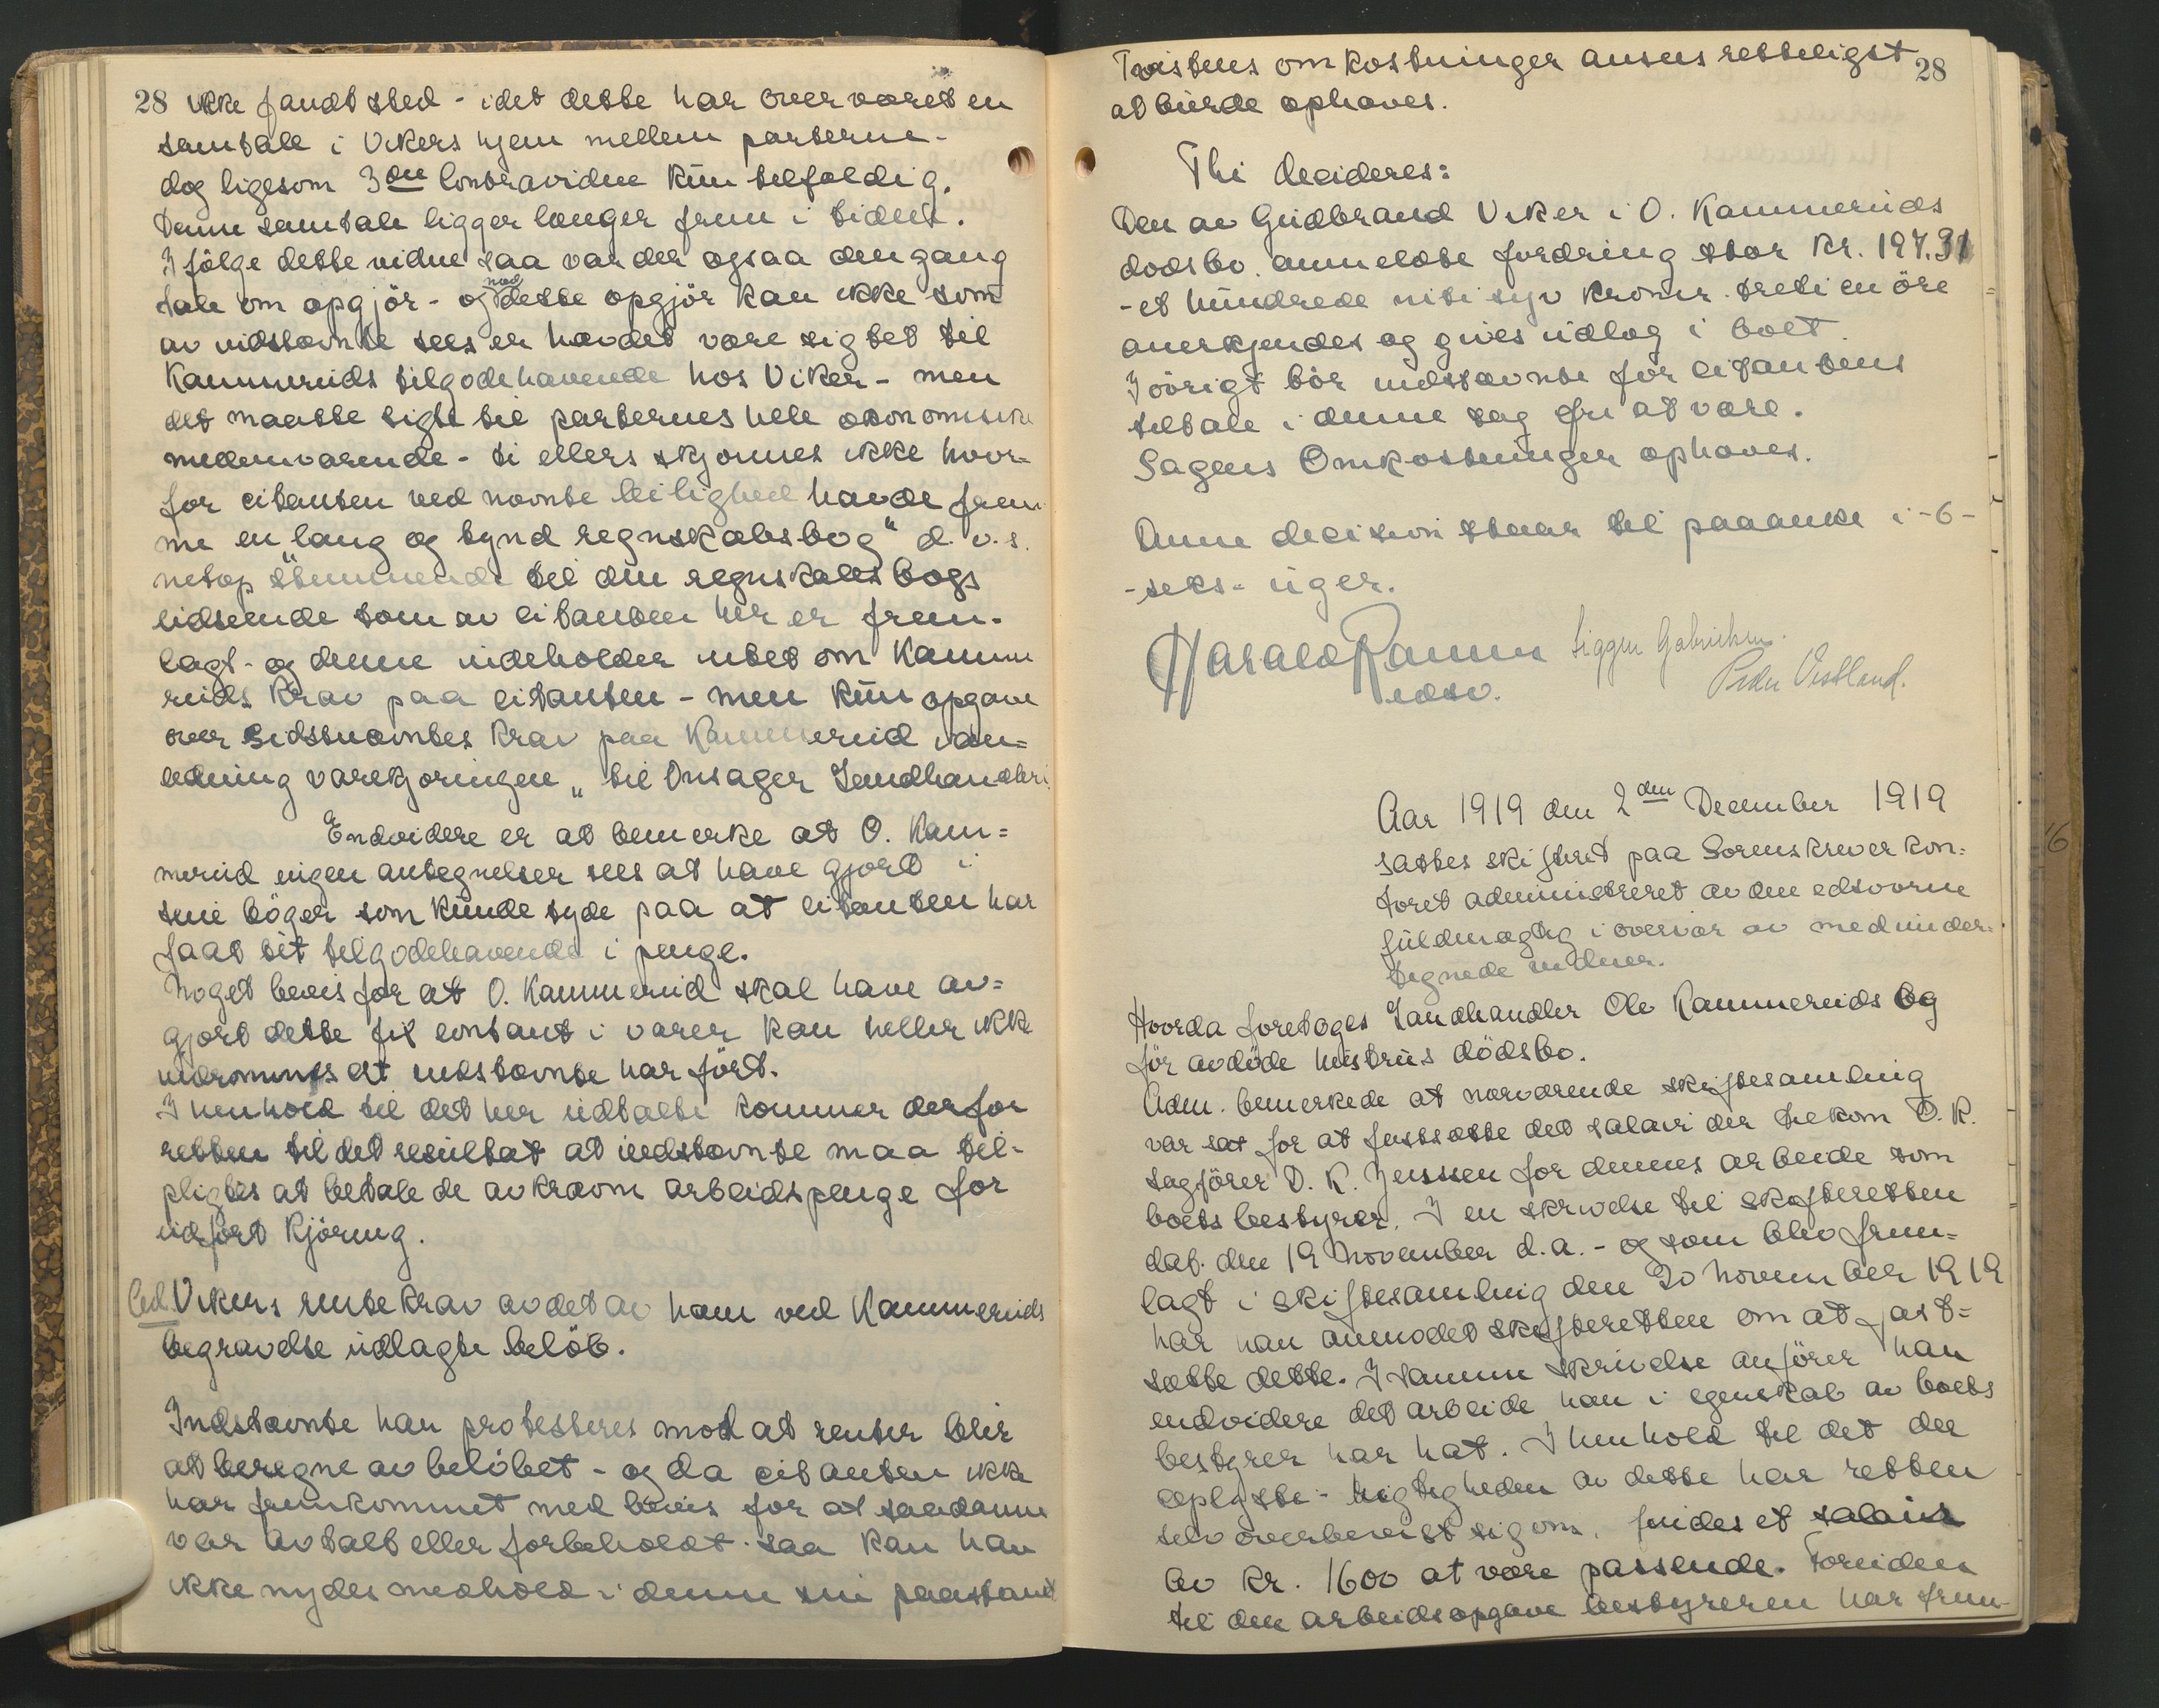 28 ikke fandt sted - idet dette har overværet en
samtale i Vikers hjem mellem parterne -
dog ligesom 3die contravidne kun tilfældig.
Denne samtale ligger længer frem i tiden.
Ifølge dette vidne saa var der ogsaa dengang
tale om opgjör - og nog dette opgjör kan ikke som
av indstævnte sees er hævdet være sigtet til
Kammereids tilgodehavende hos Viker - men
det maatte sigte til parternes hele økonomiske
mellemværende - ti ellers skjønnes ikke hvor=
for citanten ved nævnte leilighed havde frem
me en "lang og tynd regnskabsbog" d.v.s.
netop stemmende til den regnskabsbogs
udseende som av citanten her er frem-
lagt - og denne indeholder intet om Kamme
reids krav paa citanten - men kun opgave
over sidstnævntes krav paa Kammereid i an=
ledning varekjøringen "til Onsager Landhandleri
Endvidere er at bemerke at O. Kam=
mereid ingen antegnelser sees at have gjort i
sine böger som kunde tyde paa at citanten har
faat sit tilgodehavende i penge.
Noget bevis for at O. Kammereid skal have av=
gjort dette til contant i varer kan heller ikke
indrømmes at indstævnte har fört.
I henhold til det her udtalte kommer derfor
retten til det resultat at indstævnte maa til-
pligtes at betale de avkrævn arbeidspenge for
udført kjöring.
Ved. Vikers rentekrav av det av ham ved Kammereids
begravelse udlagte belöb.
Indstævnte har protesteres mod at renter blir
at beregne av belöbet - og da citanten ikke
har fremkommet med bevis for at saadanne
var avtalt eller forbeholdt - saa kan han
ikke nydes medhold i denne sin paastand
Tvistens omkostninger ansees retteligst 28
at burde ophæves.
Thi decideres:
Den av Gudbrand Viker i O. Kammereids
dødsbo. anmeldte fordring stor kr. 197.31
- et hundrede niti syv kroner. treti en öre
anerkjendes og gives udlæg i boet
Iövrigt bör indstævnte for citantens
tiltale i denne sag fri at være.
Sagens Omkostninger ophæves.
Denne decision staar til paaanke i -6-
-seks- uger.
Harald Ramm Sigger Gabrielsen.
edsv. Peder Vestland.
Aar 1919 den 2den December 1919
sattes skifteret paa Sorenskriverkon=
toret administreret av den edsvorne
fuldmægtig i overvær av medunder=
tegnede vidner.
Hvorda foretoges Landhandler Ole Kammereids og
för avdöde hustrus dödsbo.
Adm. bemerkede at nærværende skiftesamling
var sat for at fastsætte det salair der tilkom O.R.
sagförer D. K. Jenssen for dennes arbeide som
boets bestyrer. I en skrivelse til skifteretten
dat. den 19 November d.a. - og som blev frem=
lagt i skiftesamling den 20 November 1919
har han anmodet skifteretten om at fast=
sætte dette. I samme skrivelse anförer han
endvidere det arbeide han i egenskab av boets
bestyrer har hat. I henhold til det der
oplyste - rigtigheden av dette har retten
selv overbevist sig om, findes et salair
av kr. 1600 at være passende. Foruden
til den arbeidsopgave bestyreren har frem-